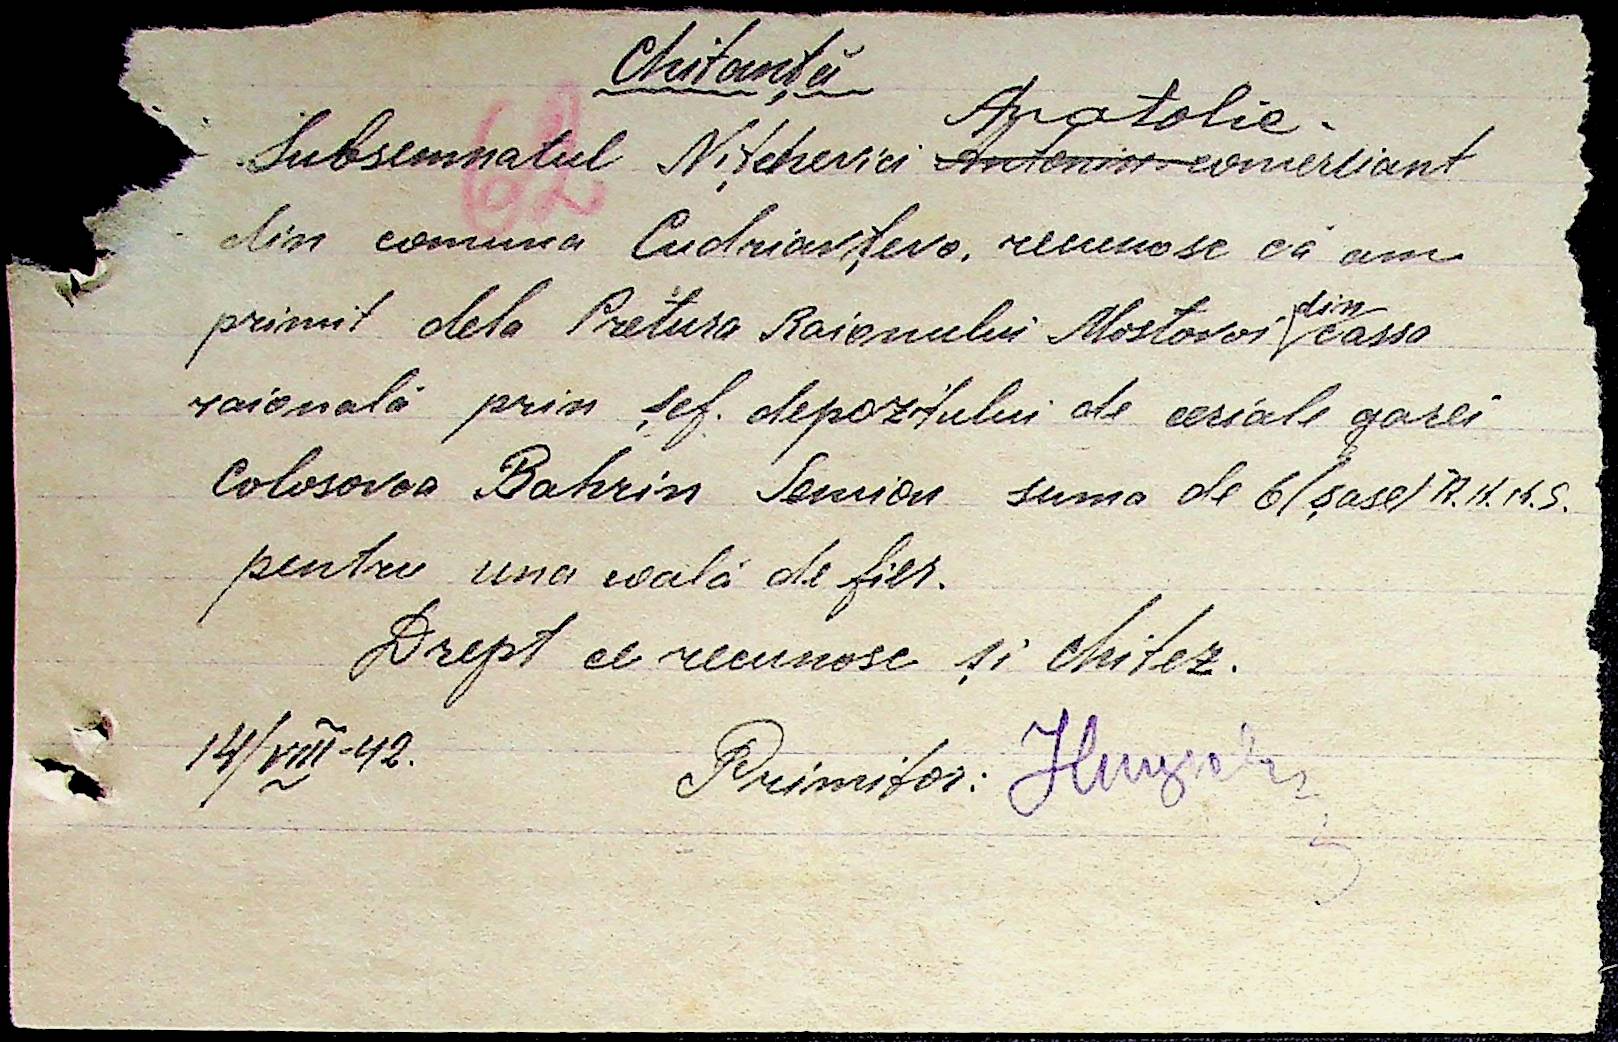 Chitanță
62
Anatolie.
Subsemnatul Nițchevici Antonin comersiant
din comuna Cudriavțevo, recunosc că am
primit dela Pretura Raionului Mostovoi din cassa
raională prin șef. depozitului de ceriale garei
Colosovca Bahrin Semion suma de 6 (șase) R.K.K.S.
pentru una coală de fier.
Drept ce recunosc și chitez.
14/VIII-42.
Primitor: